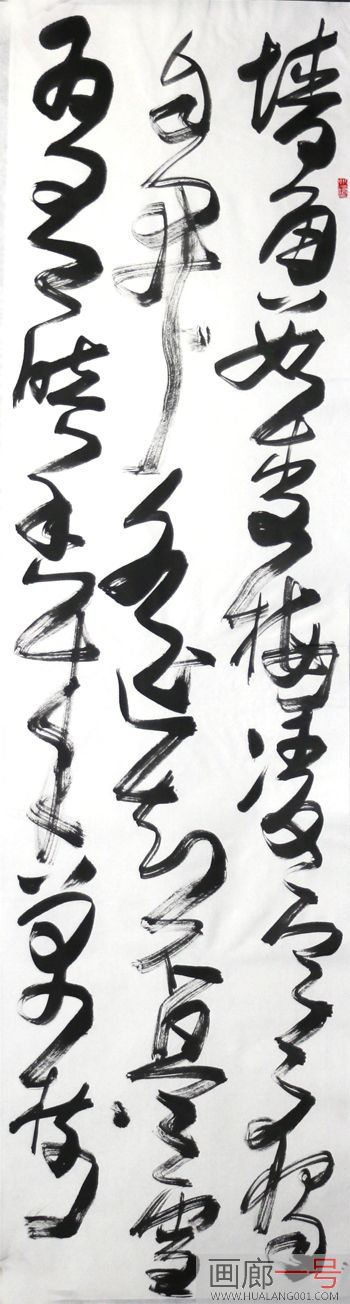 墙角数枝梅凌寒独
自开遥知不是雪
为有暗香来
画廊一号
WWW.HUALANG001.COM